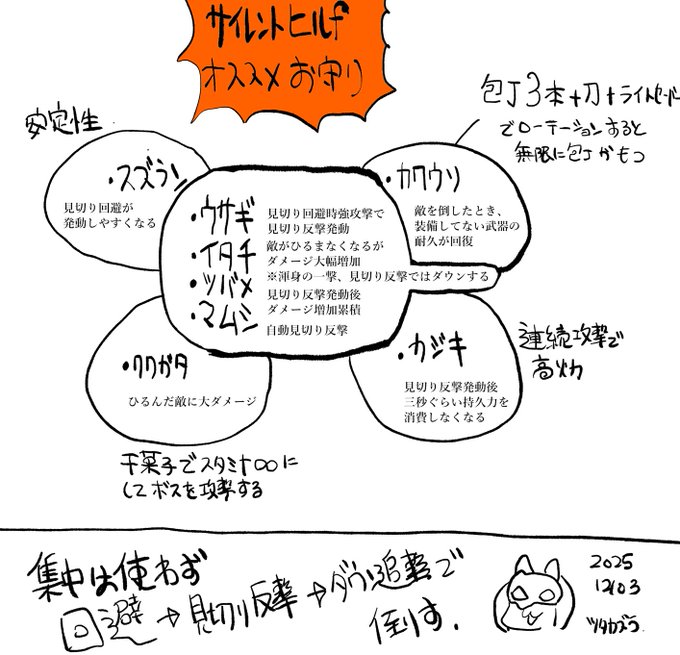 サイレントヒルf
オススメお守り
安定性
・スズラン
見切り回避が
発動しやすくなる
包丁3本+刀+ライトセーバー
でローテーションすると
無限に包丁がもつ
・カワウソ
敵を倒したとき、
装備してない武器の
耐久が回復
・ウサギ
見切り回避時強攻撃で
見切り反撃発動
・イタチ
敵がひるまなくなるが
ダメージ大幅増加
※渾身の一撃、見切り反撃ではダウンする
・ツバメ
見切り反撃発動後
ダメージ増加累積
・マムシ
自動見切り反撃
・クワガタ
ひるんだ敵に大ダメージ
干菓子でスタミナ∞に
してボスを攻撃する
・カジキ
見切り反撃発動後
三秒ぐらい持久力を
消費しなくなる
連続攻撃で
高火力
集中は使わず
回避→見切り反撃→ダウン追撃で
倒す.
2025
12/03
ツタカズラ